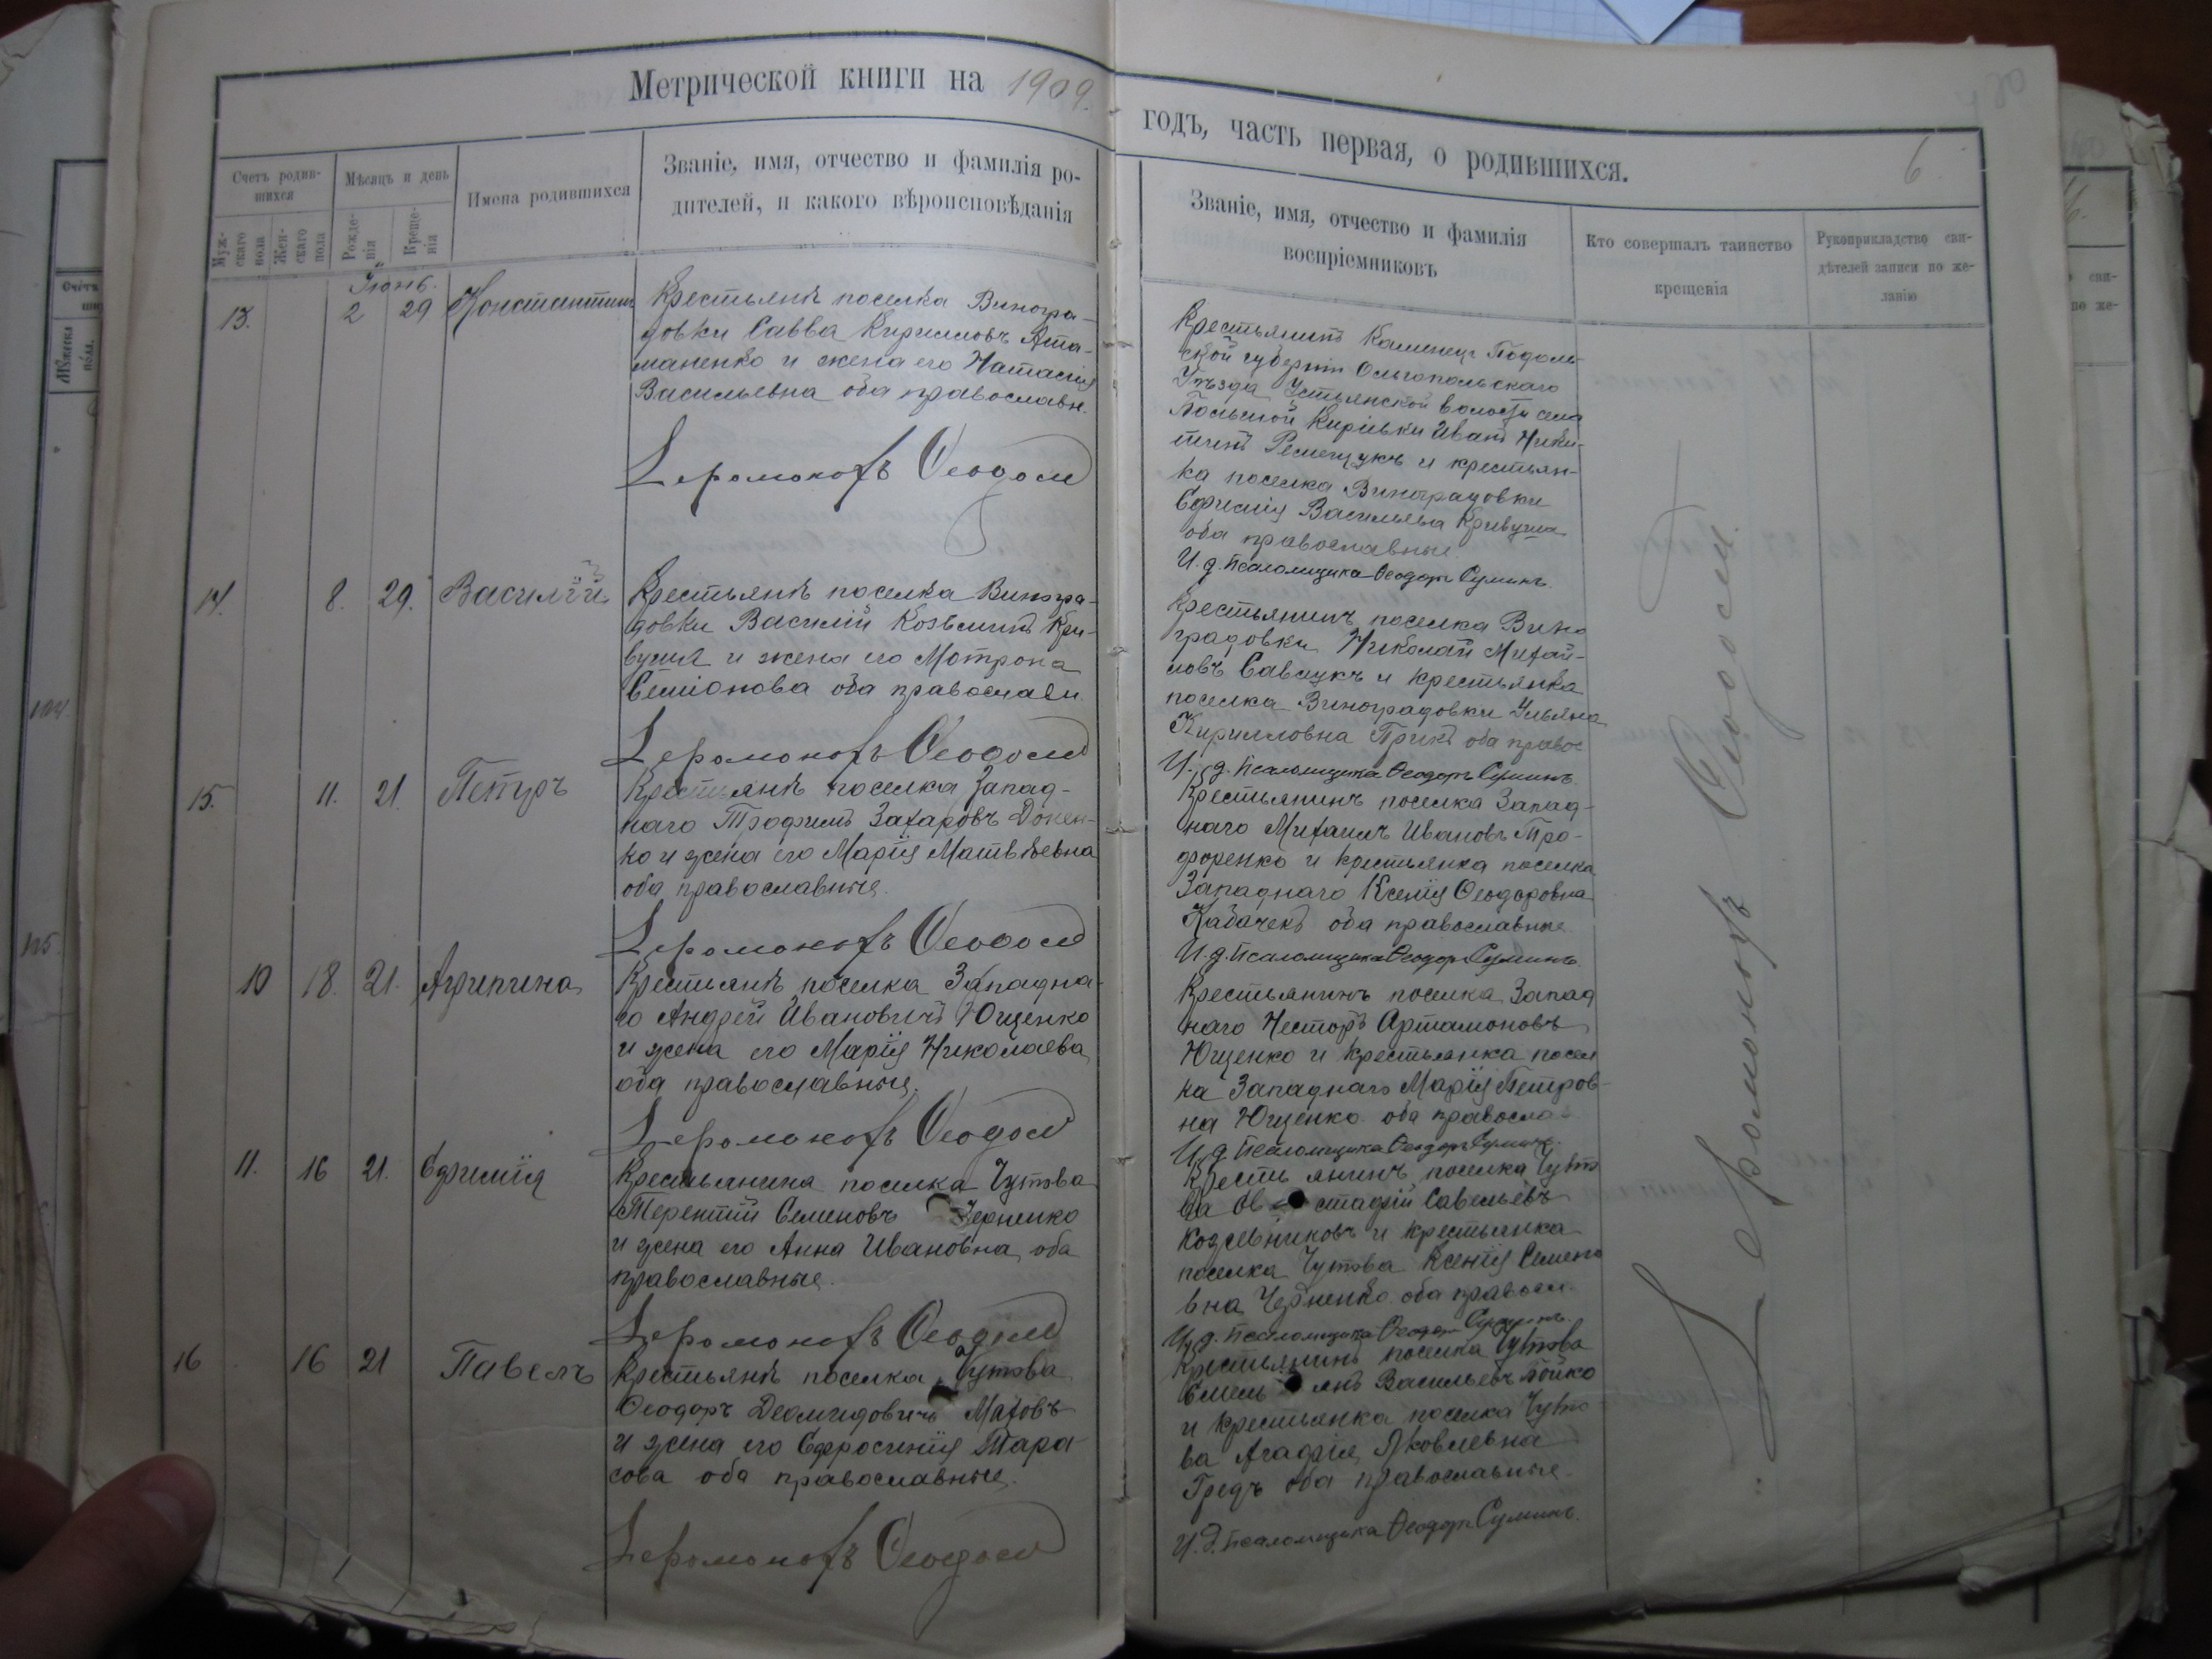 Метрической книги на 1909
годъ, часть первая, о родившихся.
6
Счетъ родив-
шихся
Мѣсяцъ и день
Имена родившихся
Званіе, имя, отчество и фамилія ро-
дителей, и какого вѣроисповѣданія
Муж-
скаго
пола
Жен-
скаго
пола
Рожде-
нія
Креще-
нія
Званіе, имя, отчество и фамилія
воспріемниковъ
Кто совершалъ таинство
крещенія
Рукоприкладство сви-
дѣтелей записи по же-
ланію
Іюнь.
13. 2 29 Константинъ
Крестьянъ поселка Виногра-
довки Савва Кирилловъ Ата-
маненко и жена его Натасія
Васильевна оба православн.
Іеромонахъ Ѳеодосій
Крестьянинъ Каменец Подоль-
ской губерніи Ольгопольскаго
Уѣзда Устьянской волости села
Польской Киріевки Иванъ Ники-
тинъ Ременчукъ и крестьян-
ка поселка Виноградовки
Ефимія Васильева Кривуша
оба православные
И. д. псаломщика Ѳеодоръ Суминъ.
14. 8. 29. Василій
Крестьянъ поселка Виногра-
довки Василій Козьминъ Кри-
вуша и жена его Мотрона
Семіонова оба православн
Іеромонахъ Ѳеодосій
Крестьянинъ поселка Вино
градовки Николай Михай-
ловъ Савчукъ и крестьянка
поселка Виноградовки Ульяна
Кирилловна Прикъ оба правос
И. д. псаломщика Ѳеодоръ Суминъ
15. 11. 21. Петръ
Крестьянъ поселка Запад-
наго Трофимъ Захаровъ Донен-
ко и жена его Марія Матвѣевна
оба православные.
Іеромонахъ Ѳеодосій
Крестьянинъ поселка Запад-
наго Михаилъ Ивановъ Тро-
форенко и крестьянка поселка
Западнаго Ксенія Ѳеодоровна
Кабачекъ оба православные
И. д. псаломщика Ѳеодоръ Суминъ
10 18. 21. Агрипина
Крестьянъ поселка Западна-
го Андрей Ивановичъ Ющенко
и жена его Марія Николаева
оба православные.
Іеромонахъ Ѳеодосій
Крестьянинъ поселка Запад
наго Несторъ Артамоновъ
Ющенко и крестьянка посел
ка Западнаго Марія Петров-
на Ющенко оба правосла
И. д. псаломщика Ѳеодоръ Суминъ.
11. 16 21. Ефимія
Крестьянина поселка Чутова
Терентий Семеновъ Черненко
и жена его Анна Ивановна оба
православные.
Іеромонахъ Ѳеодосій
Крестьянинъ поселка Чуто
ва стафій Савельевъ
Кожевниковъ и крестьянка
поселка Чутова Ксенія Семено
вна Черненко оба правосл.
И. д. псаломщика Ѳеодоръ Суминъ.
16 16 21 Павелъ
Крестьянъ поселка Чутова
Ѳеодоръ Деомидовичъ Маховъ
и жена его Ефросинія Тара
сова оба православные.
Іеромонахъ Ѳеодосій
Крестьянинъ поселка Чутова
Емельянъ Васильевъ Бойко
и крестьянка поселка Чуто
ва Агафія Яковлевна
Гредъ оба православные.
И. д. псаломщика Ѳеодоръ Суминъ.
Іеромонахъ Ѳеодосій.